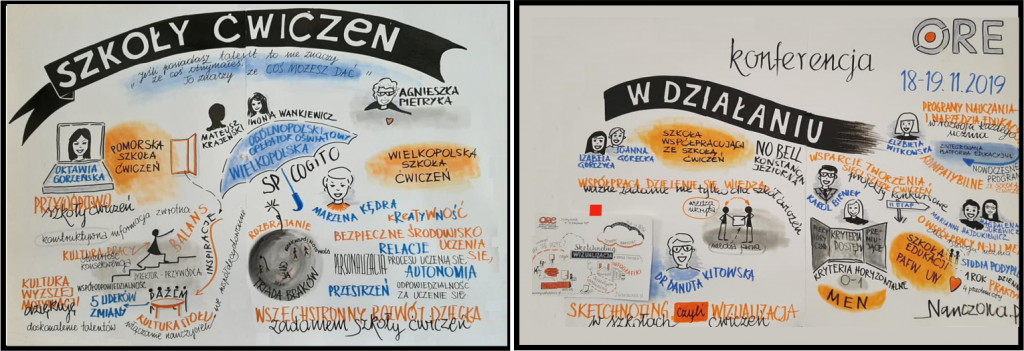 SZKOŁY ĆWICZEŃ
"Jeśli posiadasz talent to nie znaczy
że coś otrzymałeś.
To znaczy że COŚ MOŻESZ DAĆ"
AGNIESZKA
PIETRYKA
MATEUSZ
KRAJEWSKI
IWONA WANKIEWICZ
OGÓLNOPOLSKI
OPERATOR OŚWIATOWY
WIELKOPOLSKA
POMORSKA
SZKOŁA
ĆWICZEŃ
OKTAWIA
GORZEŃSKA
WIELKOPOLSKA
SZKOŁA
ĆWICZEŃ
SP COGITO
MARZENA KĘDRA
PRZYWÓDZTWO
szkoły ćwiczeń
konstruktywna informacja zwrotna
BALANS
INSPIRACJE
KULTURA PRACY
DYREKTOR - PRZYWÓDCA
KULTURA
WYŻSZEJ
MOTYWACJI
WSPÓŁODPOWIEDZIALNOŚĆ
5 LIDERÓW
ZMIANY
doskonalenie talentów
RAZEM
KULTURA ZESPOŁU
włączanie nauczycieli
ROZBRAJANIE
TRIADA BRAKÓW
KREATYWNOŚĆ
BEZPIECZNE ŚRODOWISKO
UCZENIA
SIĘ,
RELACJE
PERSONALIZACJA
PROCESU UCZENIA SIĘ,
AUTONOMIA
PRZESTRZEŃ
ODPOWIEDZIALNOŚĆ
ZA UCZENIE SIĘ
WSZECHSTRONNY ROZWÓJ DZIECKA
zadaniem szkoły ćwiczeń
konferencja
ORE
18-19.11.2019
W DZIAŁANIU
IZABELA
GORCZYCA
JOANNA
GÓRECKA
SZKOŁA
WSPÓŁPRACUJĄCA
ZE SZKOŁĄ
ĆWICZEŃ
NO BELL
KONSTANCIN
JEZIORNA
ELŻBIETA
WITKOWSKA
PROGRAMY NAUCZANIA
I NARZĘDZIA EDUKACJI
w rozwoju każdego
ucznia
ZINTEGROWANA
PLATFORMA EDUKACYJNA
KOMPATYBILNE
WSPÓŁPRACA, DZIELENIE SIĘ WIEDZĄ
wiedza
ukryta
wiedza jawna
WSPARCIE TWORZENIA
SZKÓŁ ĆWICZEŃ
projekty konkursowe
II ETAP
KAROL BIENIEK
KRYTERIA
DOSTĘPU
0-1
KRYTERIA HORYZONTALNE
MEN
SZKOŁA
EDUKACJI
PAFW UW
STUDIA PODYPLOM
1 ROK
Sketchnoting
WIZUALIZACJA
DR DANUTA
KITOWSKA
SKETCHNOTING czyli WIZUALIZACJA
w szkołach ćwiczeń